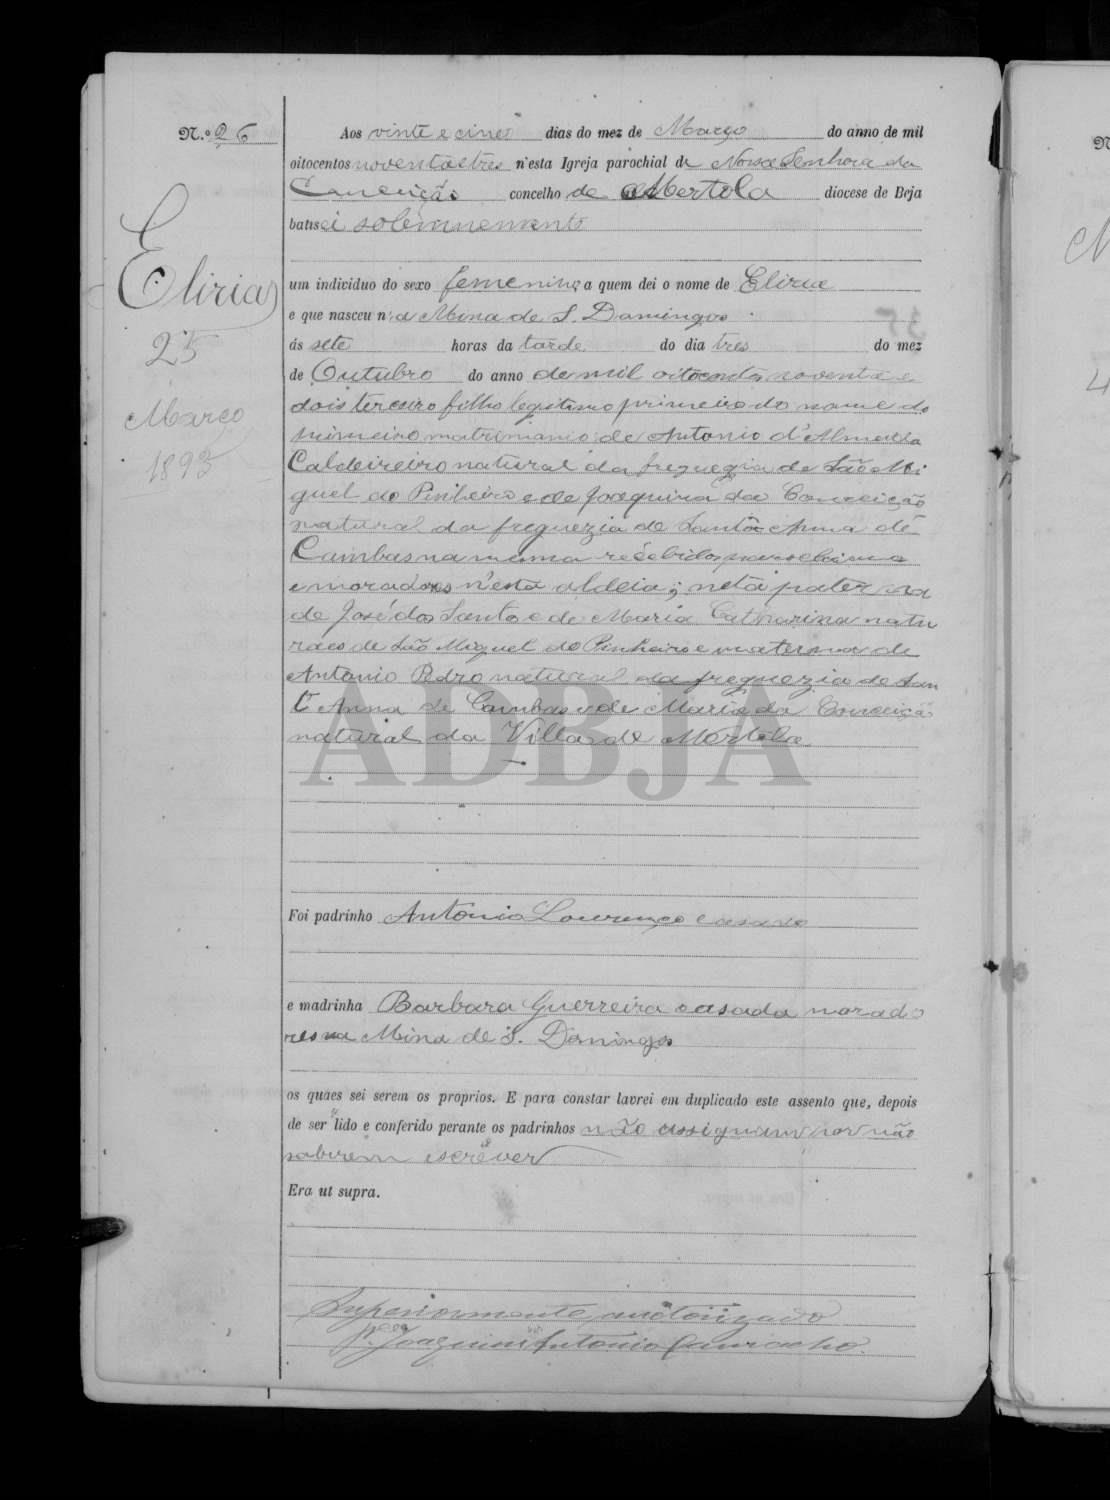 N.º 26
Eliria
25
Março
1893
Aos vinte e cinco dias do mez de Março do anno de mil
oitocentos noventa e tres n'esta Igreja parochial de Nossa Senhora da
Conceição concelho de Mertola diocese de Beja
batisei solemnemente
um individuo do sexo femenino a quem dei o nome de Eliria
e que nasceu n'a Mina de S. Domingos
ás sete horas da tarde do dia tres do mez
de Outubro do anno de mil oitocentos noventa e
dois terceiro filho legitimo primeiro do nome do
primeiro matrimonio de Antonio d'Almeida
Caldeireiro natural da freguezia de São Mi
guel do Pinheiro e de Joaquina da Conceição
natural da freguezia de Santa Anna de
Cambas na mesma recebidos parochianos
e moradores n'esta aldeia; neta paterna
de José dos Santos e de Maria Catharina natu
raes de São Miguel do Pinheiro e materna de
Antonio Pedro natural da freguezia de San
tª Anna de Cambas e de Maria da Conceição
natural da Villa de Mertola
ADBJA
Foi padrinho Antonio Lourenço casado
e madrinha Barbara Guerreira casada morado
res na Mina de S. Domingos
os quaes sei serem os proprios. E para constar lavrei em duplicado este assento que, depois
de ser lido e conferido perante os padrinhos não assignam por não
saberem escrever
Era ut supra.
Superiormente authorizado
P.e Joaquim Antonio